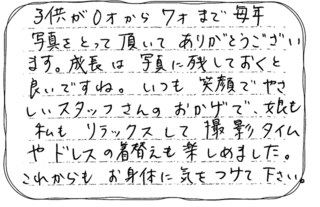 子供が0才から7才まで毎年
写真をとって頂いてありがとうござい
ます。成長は写真に残しておくと
良いですね。いつも笑顔でやさ
しいスタッフさんのおかげで、娘も
私もリラックスして撮影タイム
やドレスの着替えも楽しめました。
これからもお身体に気をつけて下さい。